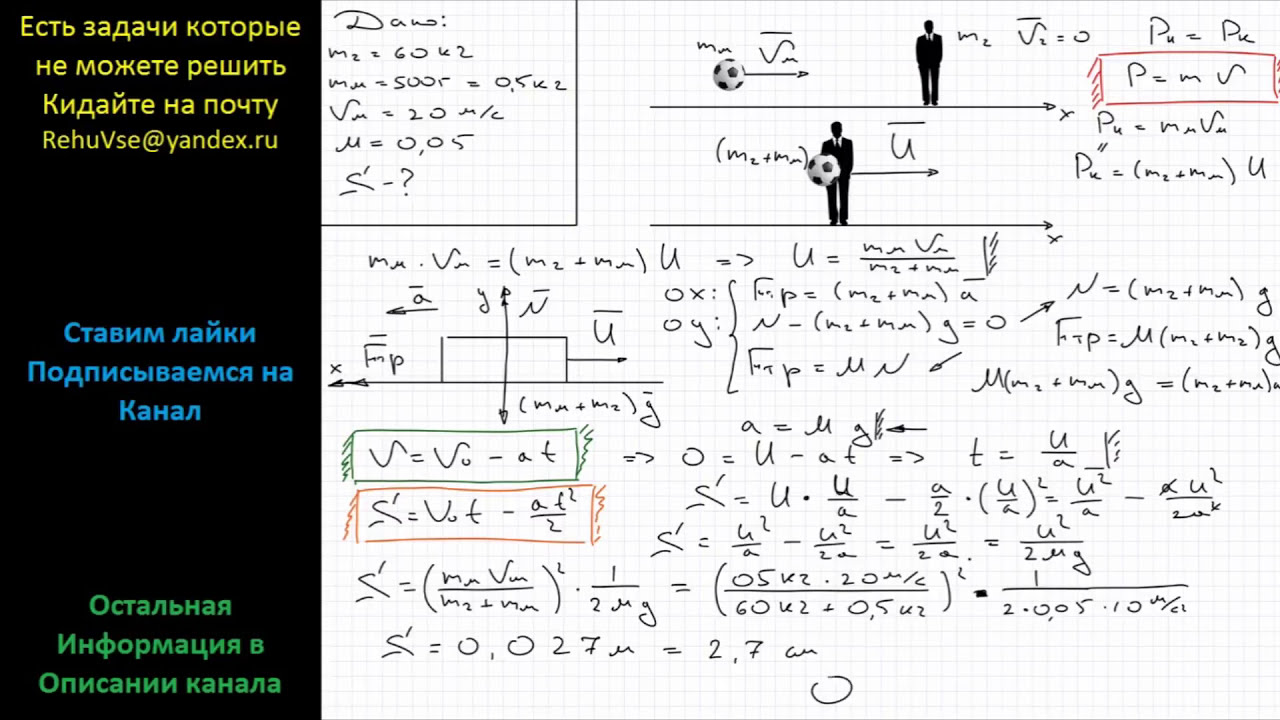 Есть задачи которые
не можете решить
Кидайте на почту
RehuVse@yandex.ru
Ставим лайки
Подписываемся на
Канал
Остальная
Информация в
Описании канала
Дано:
m₂ = 60 кг
mм = 500г = 0,5 кг
Vм = 20 м/с
μ = 0,05
S - ?
mм V̅м
m₂ V̅₂ = 0
Pн = Pк
P = m V
(m₂ + mм) U̅
Pн = mм Vм
Pк = (m₂ + mм) U
x
x
mм · Vм = (m₂ + mм) U => U = mм Vм / (m₂ + mм)
a̅ y N̅ U̅
F̅тр x
(mм + m₂) g̅
0x: Fтр = (m₂ + mм) a
0y: N - (m₂ + mм) g = 0
Fтр = μ N
N = (m₂ + mм) g
Fтр = μ (mм + m₂) g
μ (m₂ + mм) g = (m₂ + mм) a
a = μ g
V = V₀ - at => 0 = U - at => t = U/a
S = V₀t - at²/2
S = U · U/a - a/2 · (U/a)² = U²/a - aU²/2a²
S = U²/a - U²/2a = U²/2a = U²/2μg
S = (mм Vм / (m₂ + mм))² · 1/2μg = (05 кг · 20 м/с / (60 кг + 0,5 кг))² · 1/(2 · 0,05 · 10 м/с²)
S = 0,027 м = 2,7 см